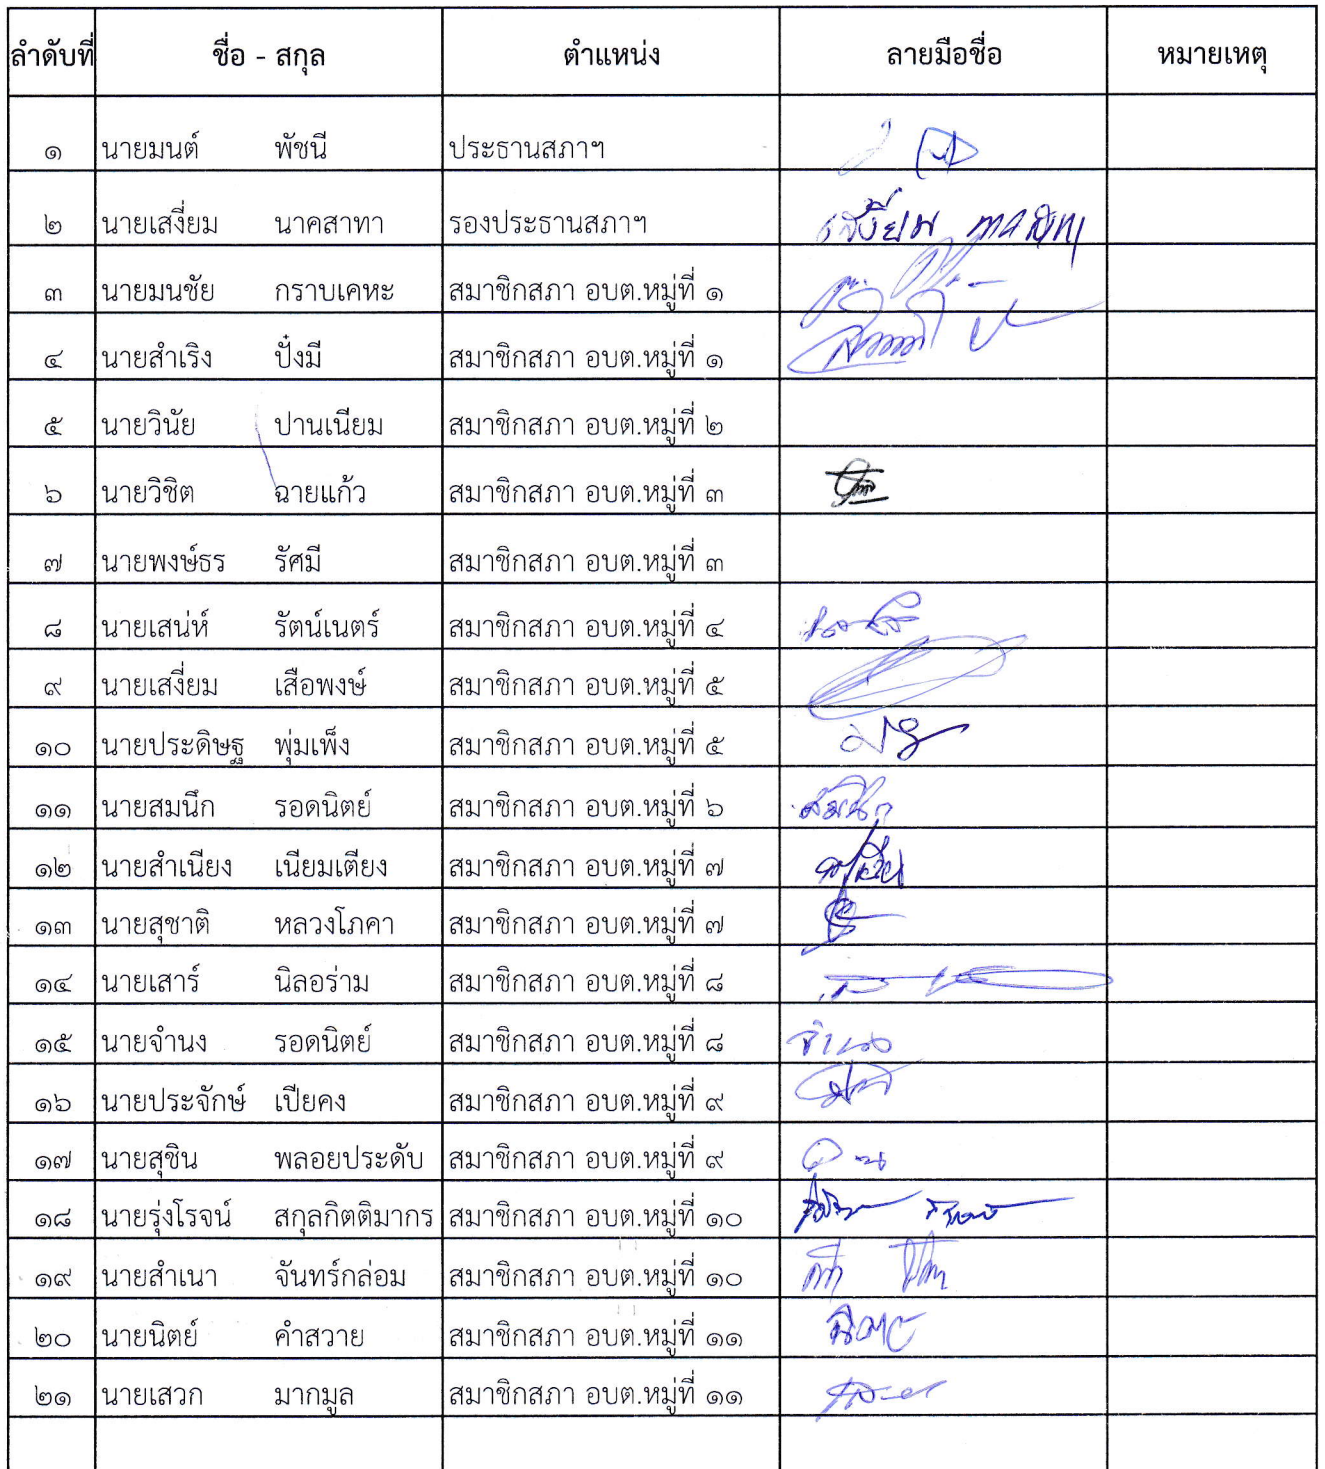 ลำดับที่ ชื่อ - สกุล ตำแหน่ง ลายมือชื่อ หมายเหตุ
๑ นายมนต์ พัชนี ประธานสภาฯ
๒ นายเสงี่ยม นาคสาทา รองประธานสภาฯ เสงี่ยม
๓ นายมนชัย กราบเคหะ สมาชิกสภา อบต.หมู่ที่ ๑
๔ นายสำเริง ปิ๋งมี สมาชิกสภา อบต.หมู่ที่ ๑
๕ นายวินัย ปานเนียม สมาชิกสภา อบต.หมู่ที่ ๒
๖ นายวิชิต ฉายแก้ว สมาชิกสภา อบต.หมู่ที่ ๓
๗ นายพงษ์ธร รัศมี สมาชิกสภา อบต.หมู่ที่ ๓
๘ นายเสน่ห์ รัตน์เนตร์ สมาชิกสภา อบต.หมู่ที่ ๔
๙ นายเสงี่ยม เสือพงษ์ สมาชิกสภา อบต.หมู่ที่ ๕
๑๐ นายประดิษฐ พุ่มเพ็ง สมาชิกสภา อบต.หมู่ที่ ๕
๑๑ นายสมนึก รอดนิตย์ สมาชิกสภา อบต.หมู่ที่ ๖ สมนึก
๑๒ นายสำเนียง เนียมเตียง สมาชิกสภา อบต.หมู่ที่ ๗
๑๓ นายสุชาติ หลวงโภคา สมาชิกสภา อบต.หมู่ที่ ๗
๑๔ นายเสาร์ นิลอร่าม สมาชิกสภา อบต.หมู่ที่ ๘
๑๕ นายจำนง รอดนิตย์ สมาชิกสภา อบต.หมู่ที่ ๘ จำนง
๑๖ นายประจักษ์ เปียคง สมาชิกสภา อบต.หมู่ที่ ๙
๑๗ นายสุชิน พลอยประดับ สมาชิกสภา อบต.หมู่ที่ ๙
๑๘ นายรุ่งโรจน์ สกุลกิตติมากร สมาชิกสภา อบต.หมู่ที่ ๑๐
๑๙ นายสำเนา จันทร์กล่อม สมาชิกสภา อบต.หมู่ที่ ๑๐
๒๐ นายนิตย์ คำสวาย สมาชิกสภา อบต.หมู่ที่ ๑๑
๒๑ นายเสวก มากมูล สมาชิกสภา อบต.หมู่ที่ ๑๑